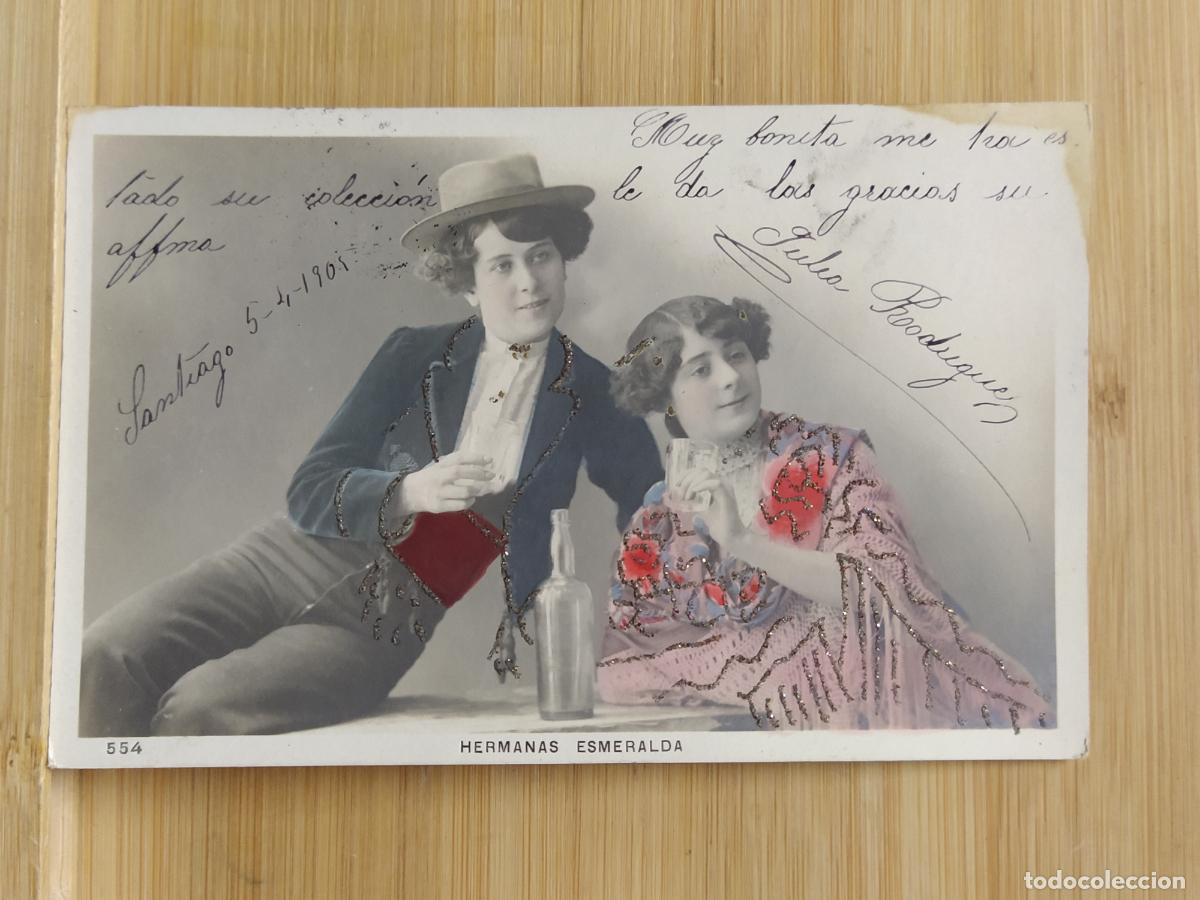 Muy bonita me ha es
tado su colección le da las gracias su
affma
Julia Rodriguez
Santiago 5-4-1905
554
HERMANAS ESMERALDA
todocoleccion